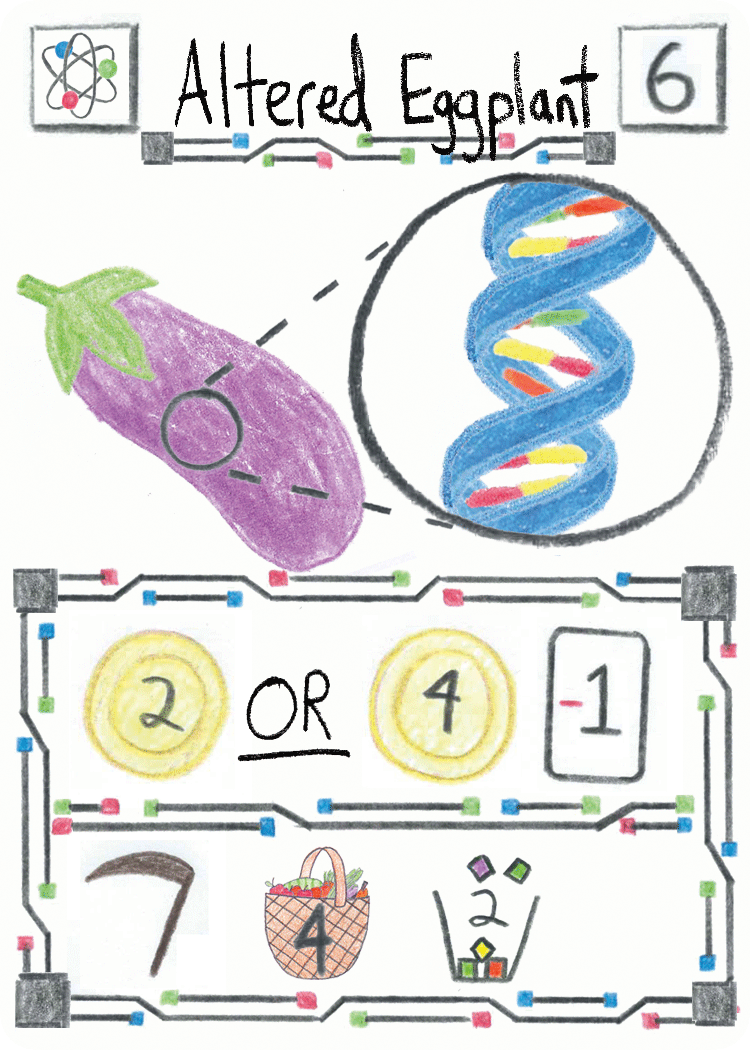 Altered Eggplant 6
2 OR 4 -1
4 2